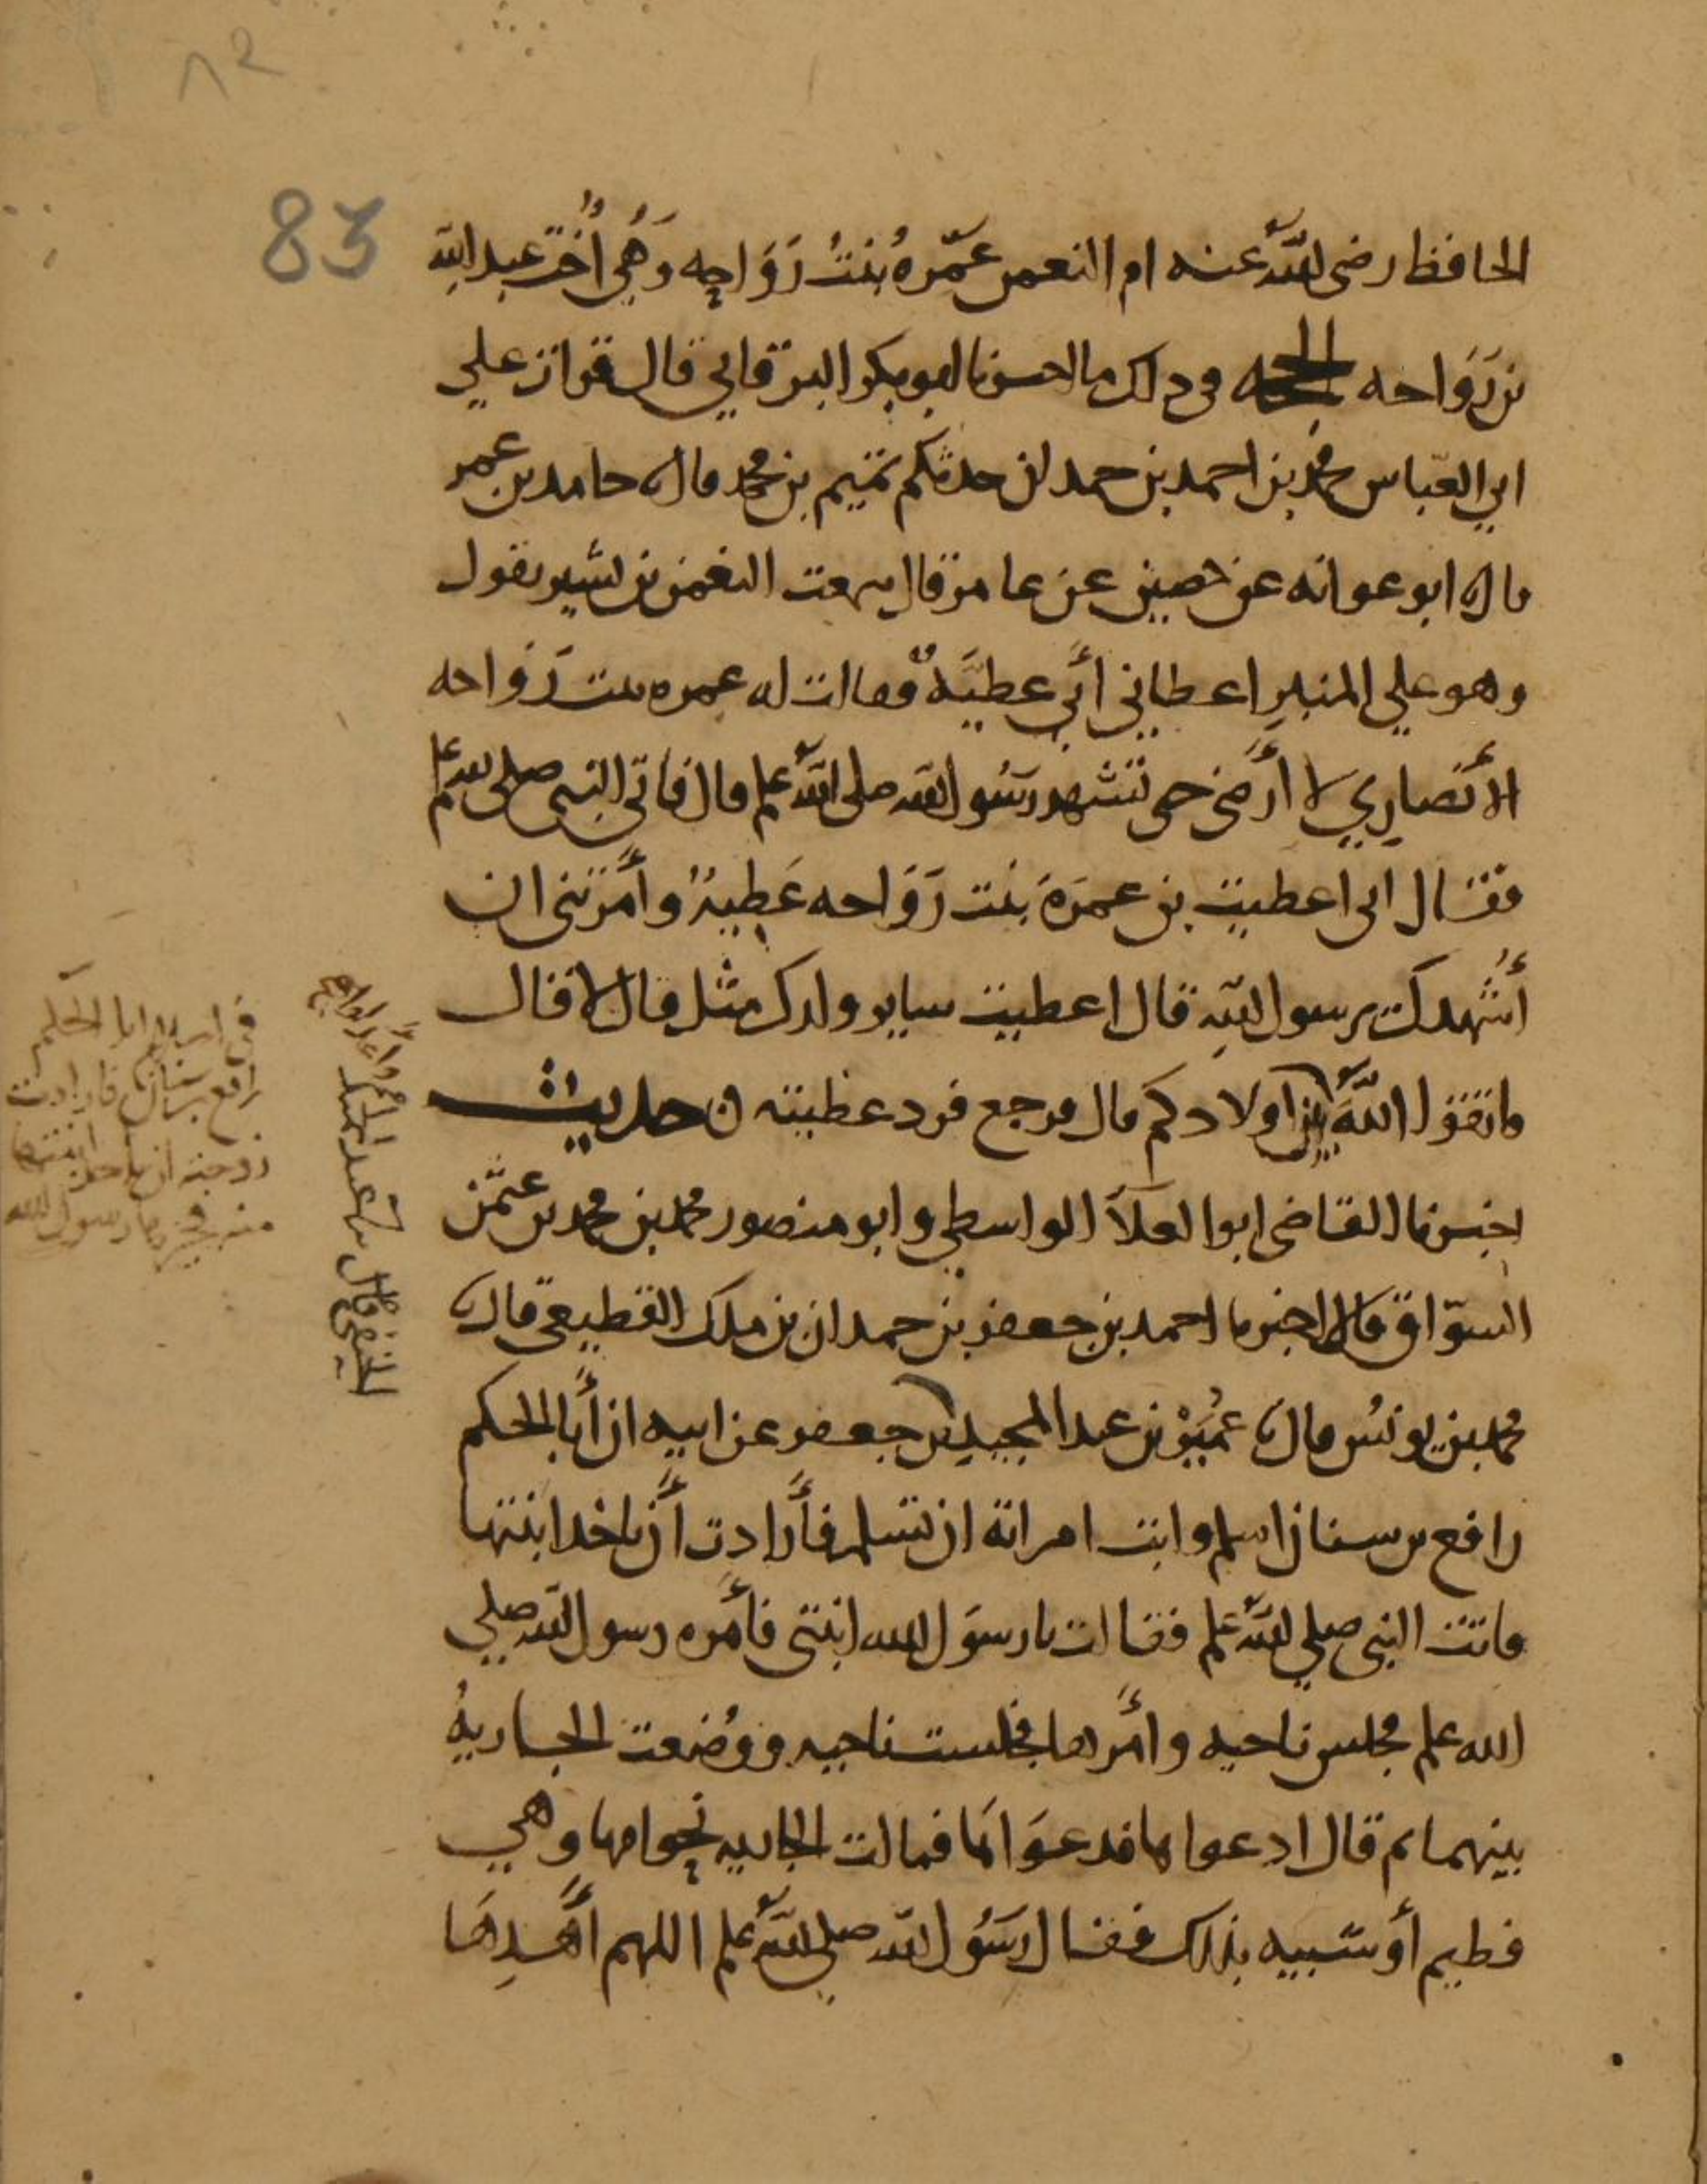 83
الحافظ رضى الله عنه ام النعمن عَمْرةُ بنتُ رَوَاحه وَهْيَ أُخت عبد الله
بن رَوَاحه الحجه فى ذلك ما اخبرنا ابو بكر البرقاني قال قرات علي
ابي العباس محمد بن احمد بن حمدان حدثكم تميم بن محمد قال حامد بن عمر
قال ابو عوانه عن حصين عن عامر قال سمعت النعمن بن بشير يقول
وهو علي المنبرِ اعطاني أَبي عطيَّةً فقالت له عمره بنت رَوَاحه
الأنصاري لا أَرضى حتى تشهد رسُول الله صلى الله علم قال فاتى النبي صلى الله علم
فقال انى اعطيت بن عمرَةَ بنت رَوَاحه عَطيةً وأمرتنى ان
أُشهدك يرسول اللهِ قال اعطيت ساير ولدك مثل قال لا قال
فاتقوا اللَّهَ بين اولادكم قال فرجع فرد عطيته حديث
اخبرنا القاضى ابوا العلاَ الواسطي وابو منصور محمد بن محمد بن عثمن
السوّاق قالا اخبرنا احمد بن جعفر بن حمدان بن ملك القطيعى قال
محمد بن يونس قال عُمَيْر بن عبد المجيدِ بن جعفر عن ابيه ان أبا الحكم
رافع بن سنان اسلم وابت امراته ان تسلم فأَرادت أَن تاخذ ابنتها
فاتت النبى صلي الله علم فقالت يا رسوَل الله ابنتى فأمره رسول الله صلي
الله علم فجلس ناحيه وأمرها فجلست ناحيه ووُضعت الجاريةُ
بينهما ثم قال ادعواها فدعوَاهَا فمالت الجاريه نحو امها وهي
فطيم أو شبيه بذلك فقال رسُول الله صلي الله علم اللهم أهدِهَا
الحنفي قال عبد الحميد
رافع بن سنان فارادت
زوجته ان تاخذ ابنتها
منه فخيرها رسول الله